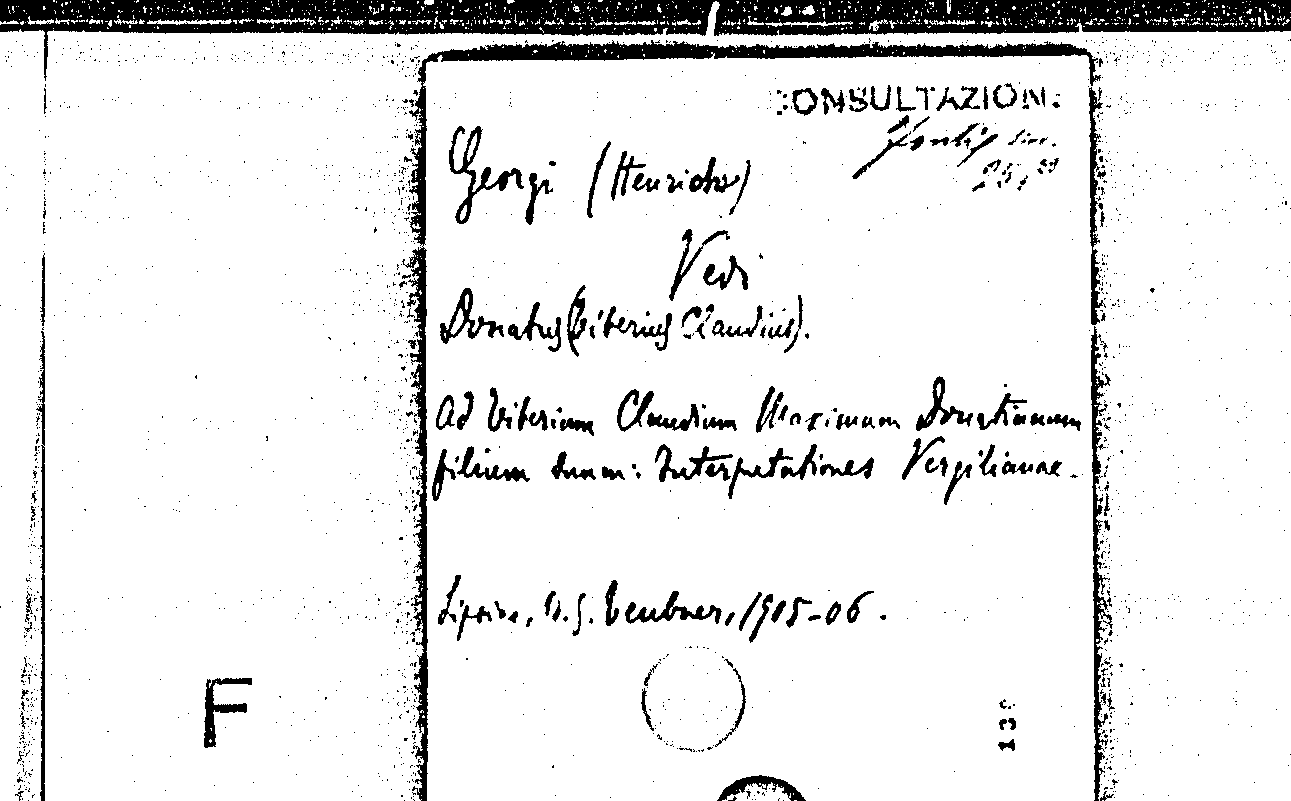 CONSULTAZION.
Georgi (Henricus)
Vedi
Donatus (Tiberius Claudius).
Ad Tiberium Claudium Maximum Donatianum
filium suum: Interpretationes Vergilianae.
Lipsiae, B. G. Teubner, 1905-06.
F